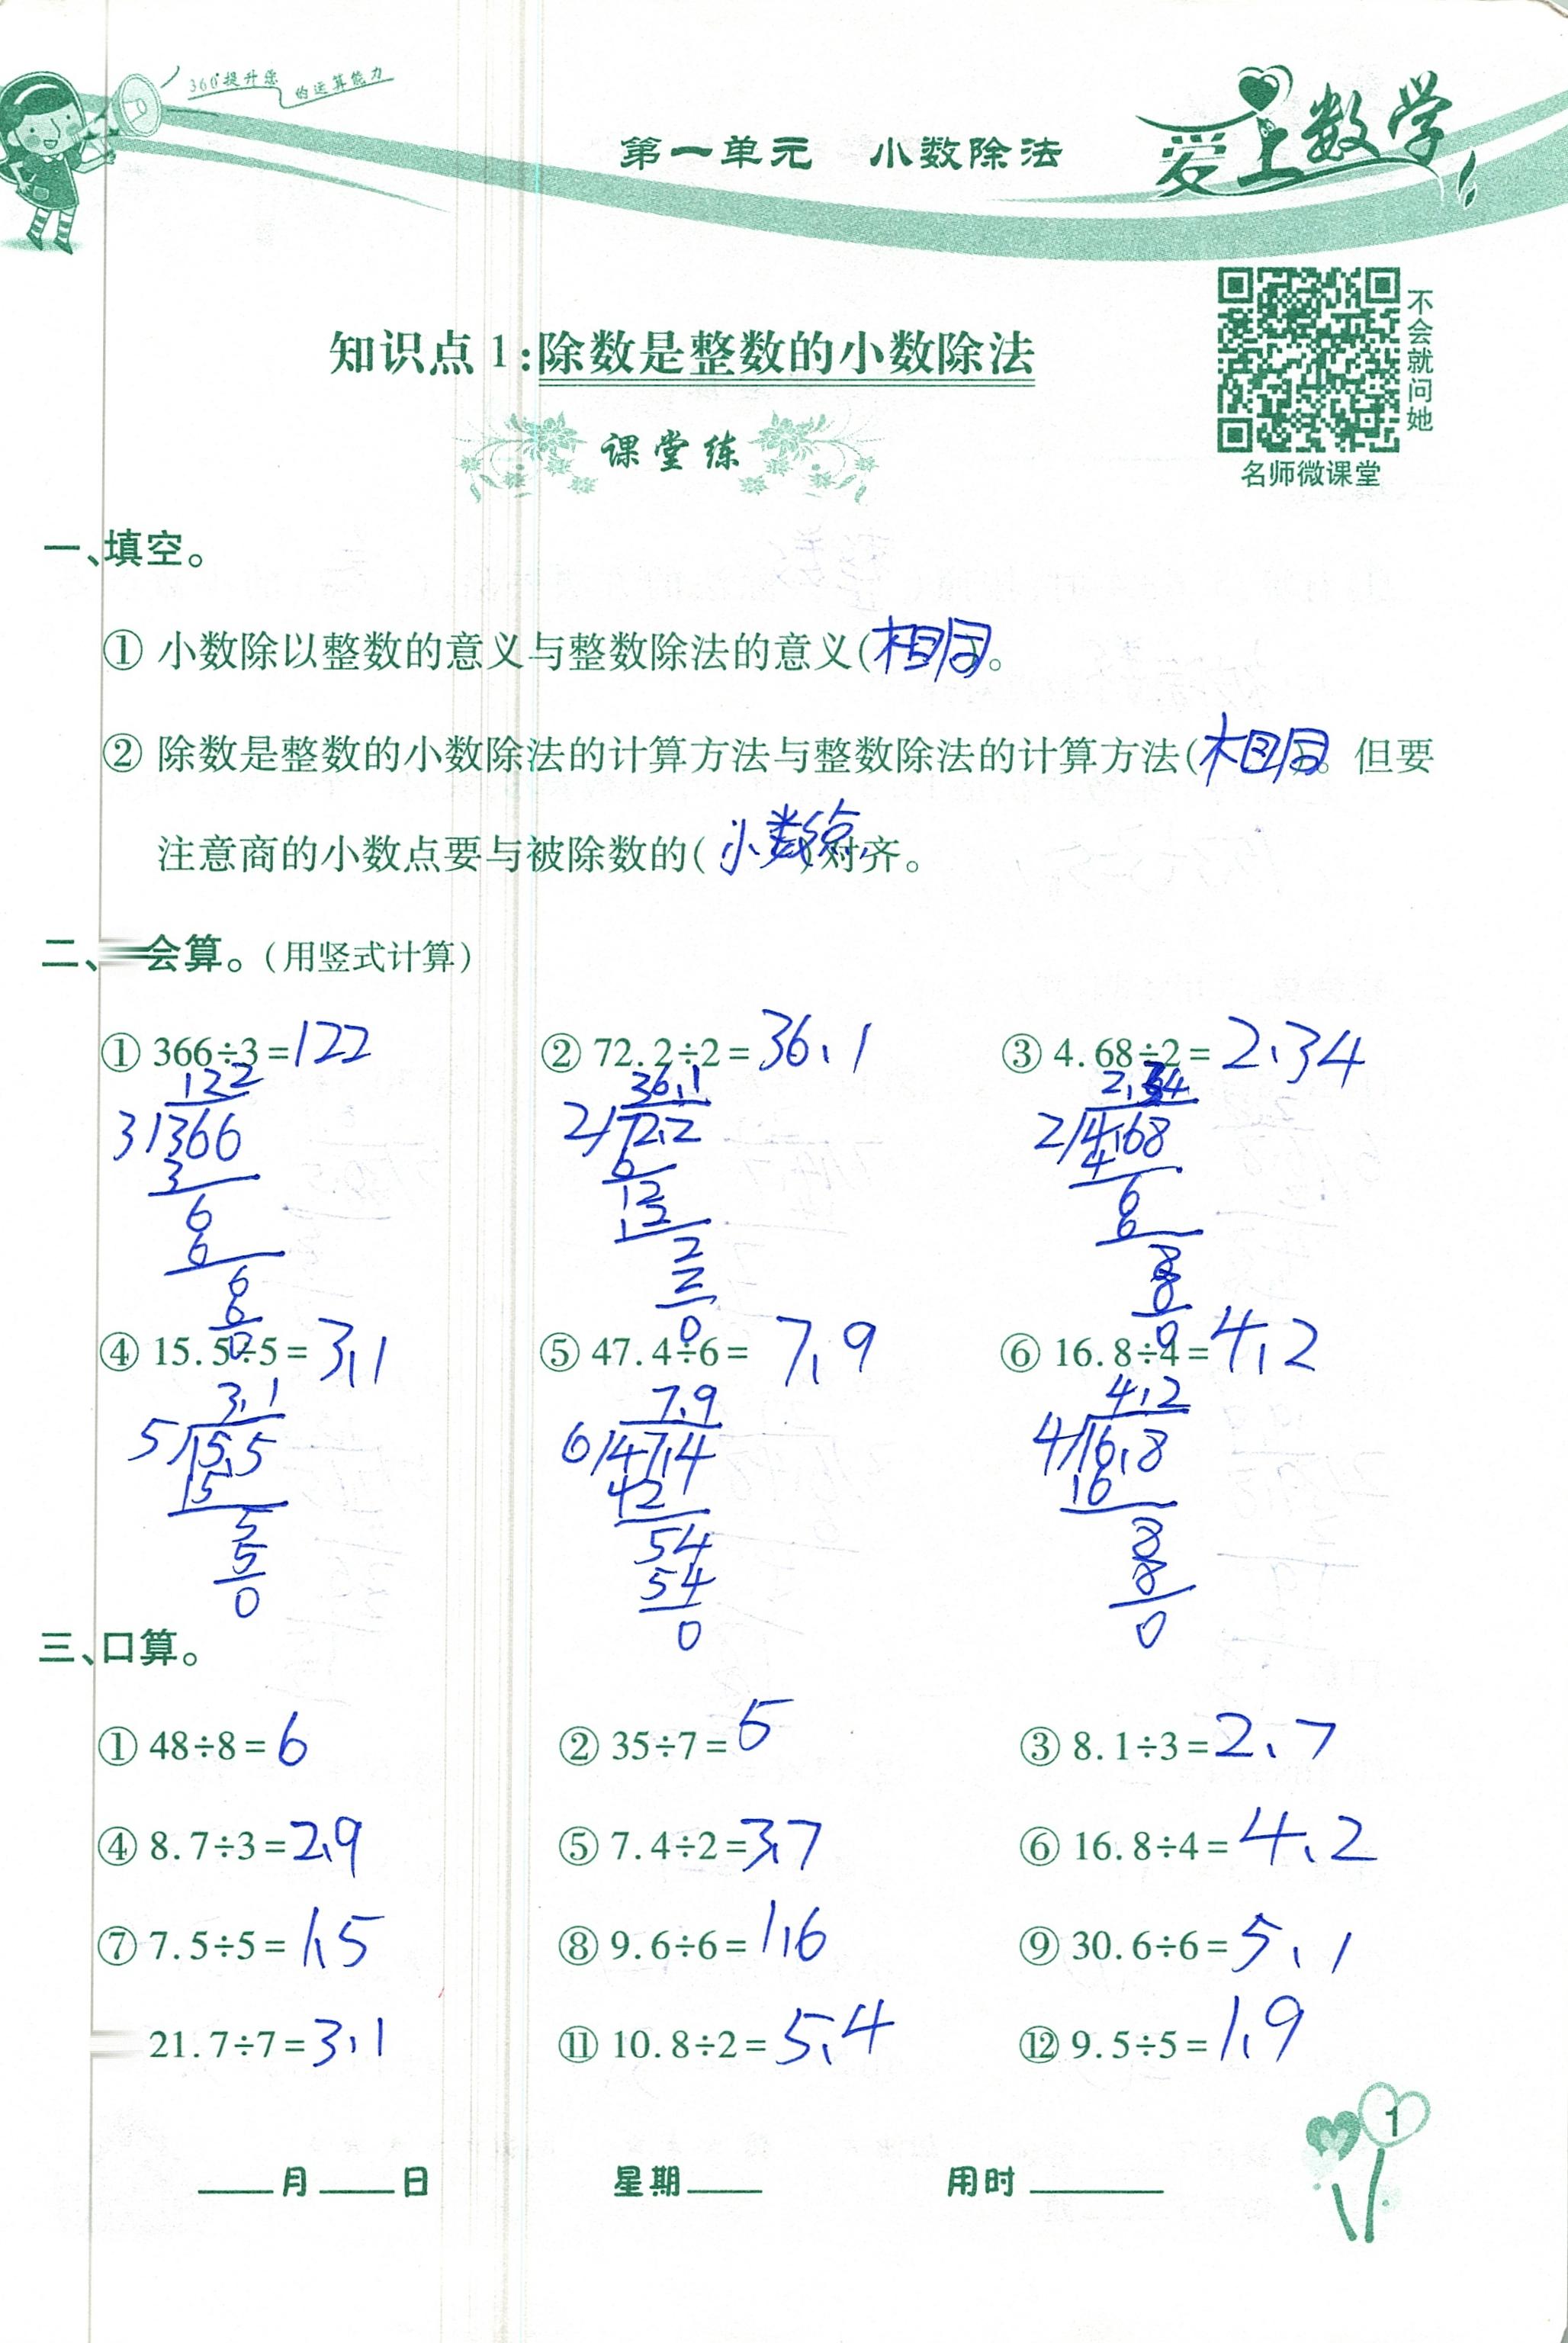 360°提升您的运算能力
第一单元 小数除法 爱上数学
不会就问她
名师微课堂
知识点1:除数是整数的小数除法
课堂练
一、填空。
① 小数除以整数的意义与整数除法的意义(相同)。
② 除数是整数的小数除法的计算方法与整数除法的计算方法(相同)。但要
注意商的小数点要与被除数的(小数点)对齐。
二、会算。(用竖式计算)
① 366÷3=122 ② 72.2÷2=36.1 ③ 4.68÷2=2.34
122 36.1 2.34
3 366 2 72.2 2 4.68
3 6 4
6 12 6
6 12 6
6 2 8
6 2 8
0 0 0
④ 15.5÷5=3.1 ⑤ 47.4÷6=7.9 ⑥ 16.8÷4=4.2
3.1 7.9 4.2
5 15.5 6 47.4 4 16.8
15 42 16
5 54 8
5 54 8
0 0 0
三、口算。
① 48÷8=6 ② 35÷7=5 ③ 8.1÷3=2.7
④ 8.7÷3=2.9 ⑤ 7.4÷2=3.7 ⑥ 16.8÷4=4.2
⑦ 7.5÷5=1.5 ⑧ 9.6÷6=1.6 ⑨ 30.6÷6=5.1
21.7÷7=3.1 ⑪ 10.8÷2=5.4 ⑫ 9.5÷5=1.9
1
月 日 星期 用时